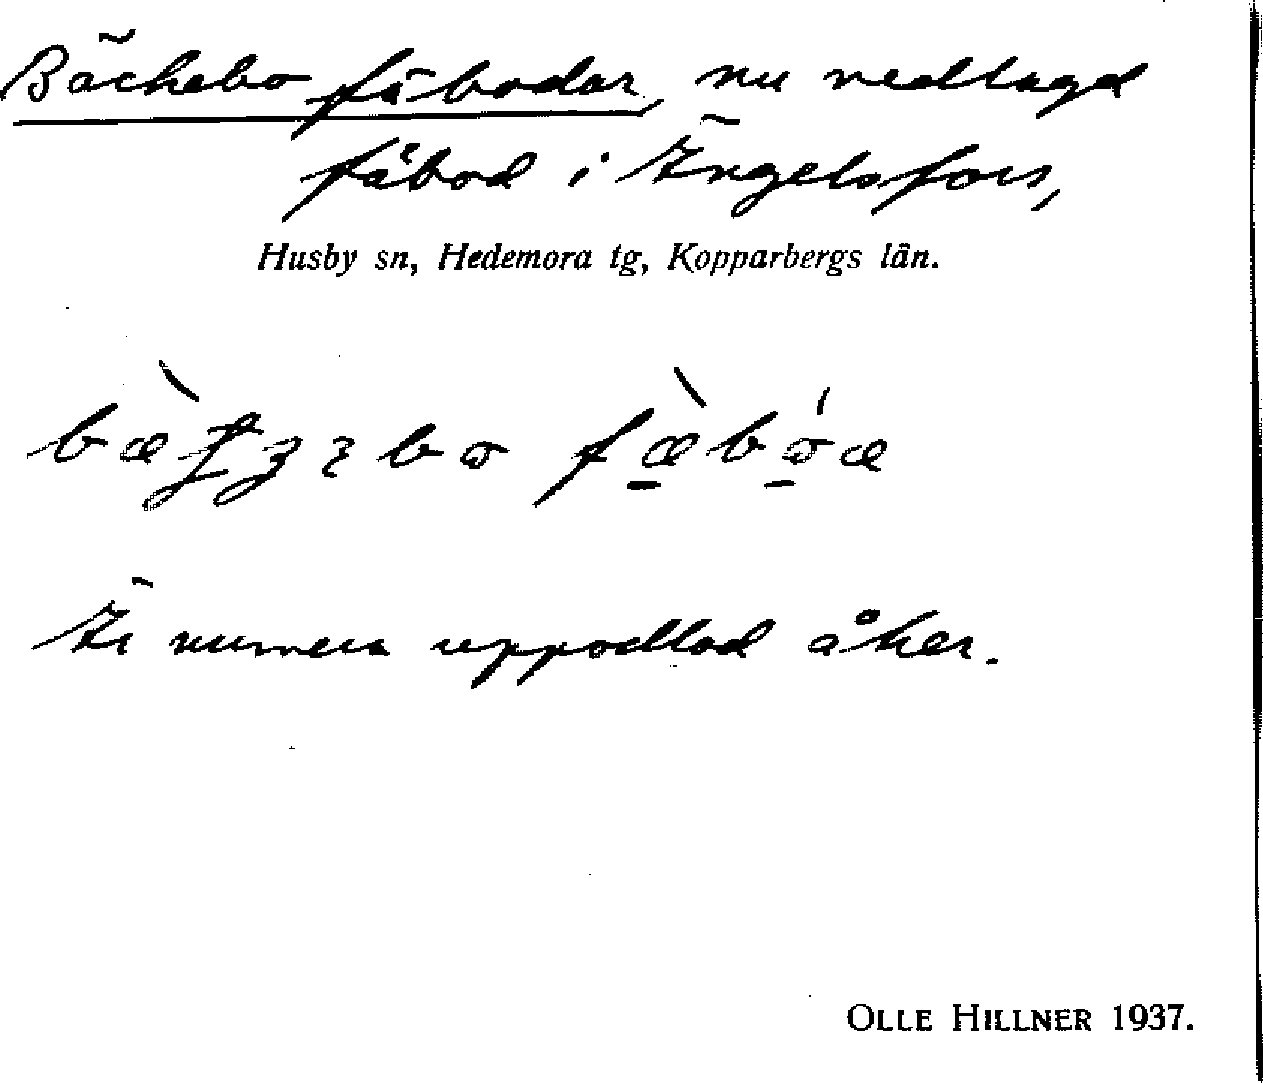 Bäckebo fäbodar, nu nedlagd
fäbod i Ängelsfors,
Husby sn, Hedemora tg, Kopparbergs län.
Är numera uppodlad åker.
OLLE HILLNER 1937.